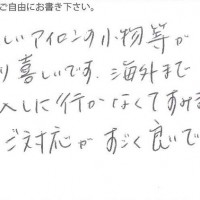 ご自由にお書き下さい。
しいアイロンの小物等が
り喜しいです。海外まで
入しに行かなくてすみま
ご対応がすごく良いで